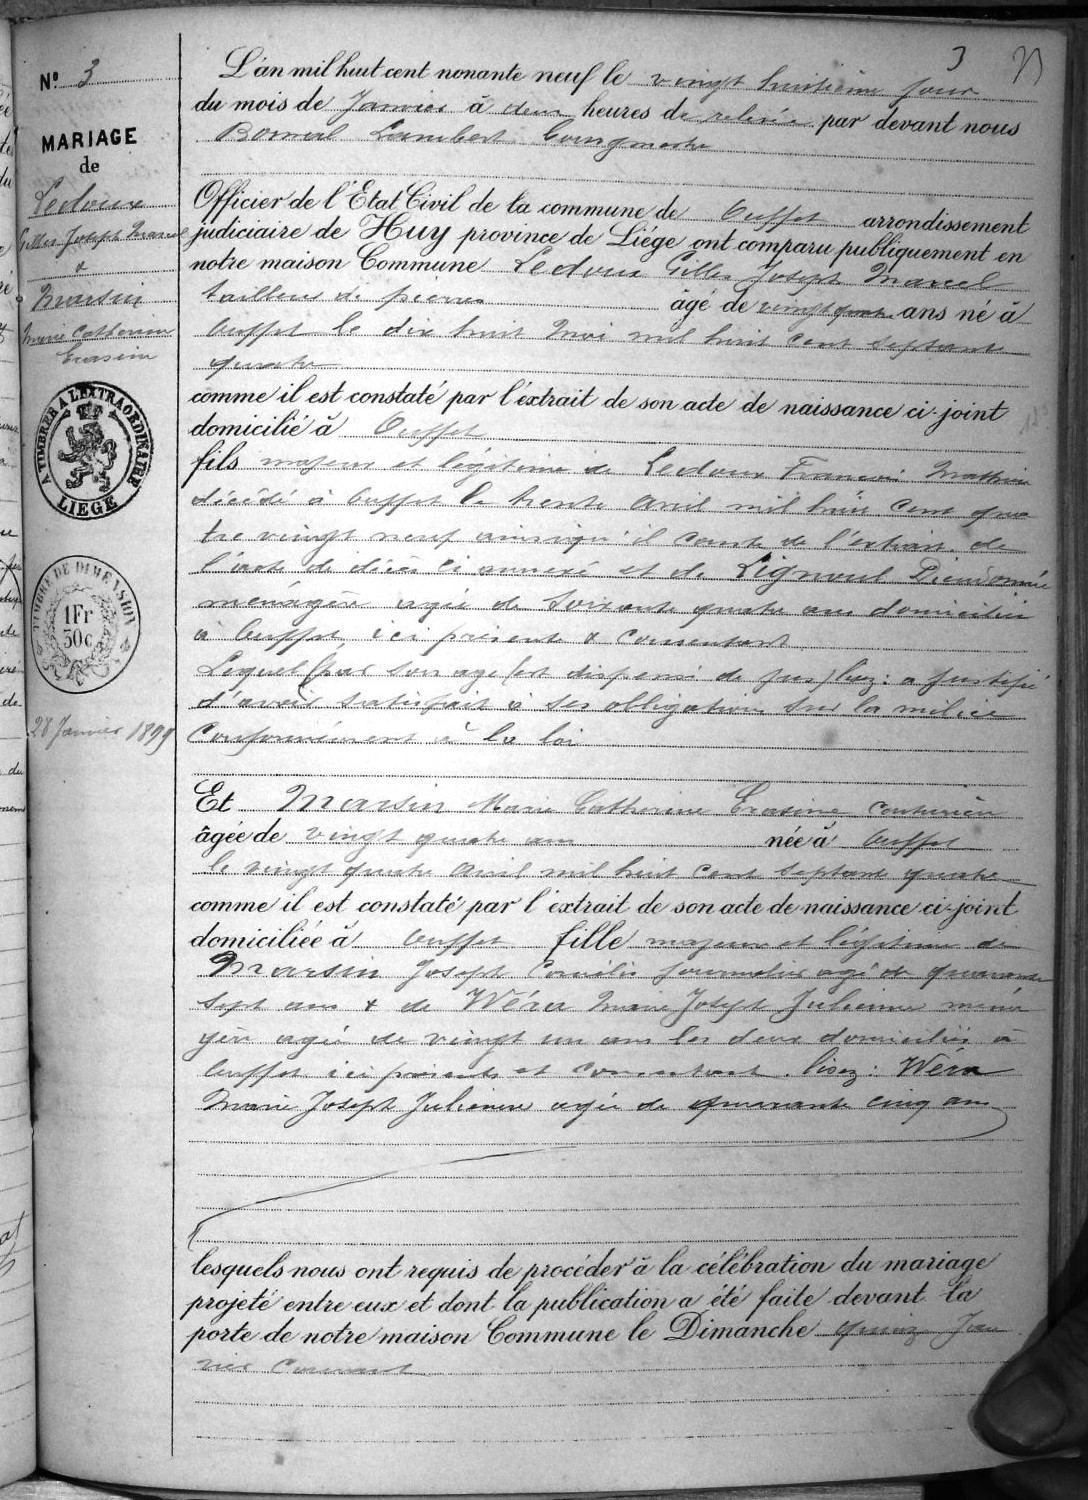 3
N° 3
MARIAGE
de
Ledoux
Gilles Joseph Marcel
&
Marsin
Marie Catherine
Erasine
A TIMBRER A L'EXTRAORDINAIRE
LIEGE
TIMBRE DE DIMENSION
1Fr
30c
28 Janvier 1899
L'an mil huit cent nonante neuf le vingt huitième jour
du mois de Janvier à deux heures de relevée par devant nous
Bomal Lambert bourgmestre
Officier de l'Etat Civil de la commune de Ouffet arrondissement
judiciaire de Huy province de Liége ont comparu publiquement en
notre maison Commune Ledoux Gilles Joseph Marcel
tailleur de pierres âgé de vingt quatre ans né à
Ouffet le dix huit Mai mil huit cent septante
quatre
comme il est constaté par l'extrait de son acte de naissance ci-joint
domicilié à Ouffet
fils majeur et légitime de Ledoux François Mathieu
décédé à Ouffet le trente Avril mil huit cent qua
tre vingt neuf ainsi qu'il conste de l'extrait de
l'acte de décès ci annexé et de Lignoul Dieudonnée
ménagère agée de soixante quatre ans domiciliée
à Ouffet ici présente & consentant
Lequel (par son age est dispensé de jus) lisez: a justifié
d'avoir satisfait à ses obligations sur la milice
Conformément à la loi
Et Marsin Marie Catherine Erasine couturière
âgée de vingt quatre ans née à Ouffet
le vingt quatre Avril mil huit cent septante quatre
comme il est constaté par l'extrait de son acte de naissance ci-joint
domiciliée à Ouffet fille majeure et légitime de
Marsin Joseph Cornélis journalier agé de quarante
sept ans & de Wéra Marie Joseph Julienne ména
gère agée de vingt un ans les deux domiciliés à
Ouffet ici présents et consentant. lisez: Wéra
Marie Joseph Julienne agée de quarante cinq ans
lesquels nous ont requis de procéder à la célébration du mariage
projeté entre eux et dont la publication a été faite devant la
porte de notre maison Commune le Dimanche quinze Jan
vier Courant